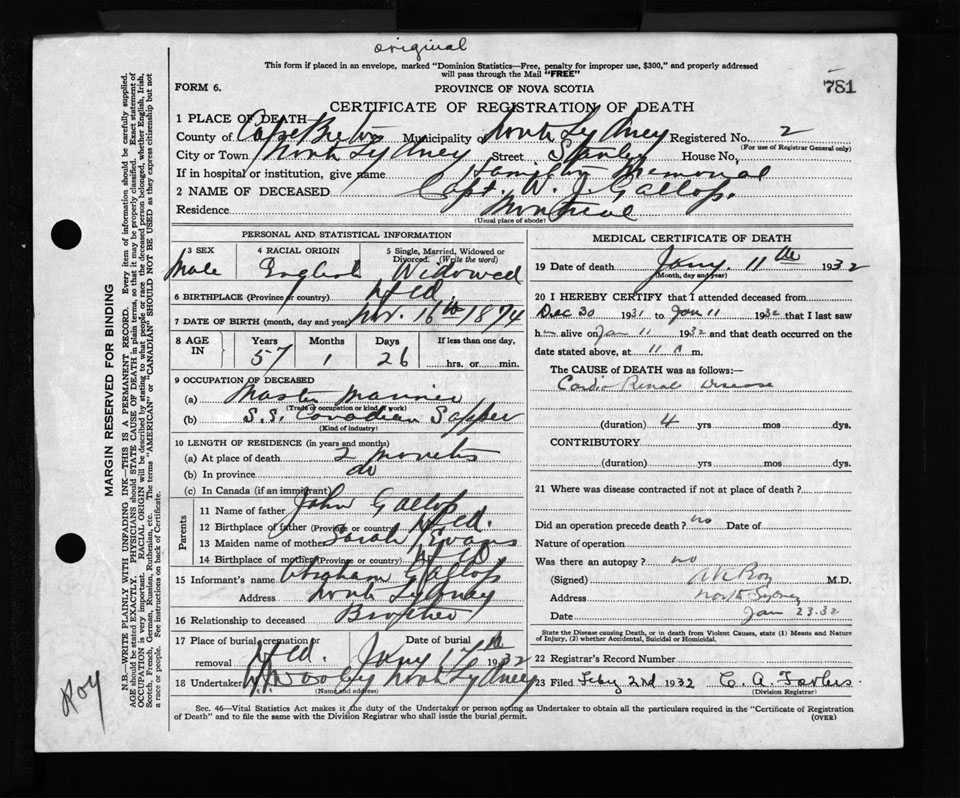 original
This form if placed in an envelope, marked "Dominion Statistics—Free, penalty for improper use, $300," and properly addressed
will pass through the Mail "FREE"
FORM 6.
PROVINCE OF NOVA SCOTIA
781
CERTIFICATE OF REGISTRATION OF DEATH
1 PLACE OF DEATH
County of Cape Breton Municipality North Sydney Registered No. 2
(For use of Registrar General only)
City or Town North Sydney Street Stanley House No,
If in hospital or institution, give name Hamilton Memorial
2 NAME OF DECEASED Capt. W. J. Gallop.
Residence Montreal
(Usual place of abode)
PERSONAL AND STATISTICAL INFORMATION
3 SEX 4 RACIAL ORIGIN 5 Single, Married, Widowed or
Divorced. (Write the word)
Male English Widowed
6 BIRTHPLACE (Province or country) Nfld.
7 DATE OF BIRTH (month, day and year) Nov. 16th 1874
8 AGE IN Years Months Days If less than one day,
57 1 26 hrs. or min.
9 OCCUPATION OF DECEASED
(a) Master Mariner
(Trade or occupation or kind of work)
(b) S.S. Canadian Sapper
(Kind of industry)
10 LENGTH OF RESIDENCE (in years and months)
(a) At place of death 2 months
(b) In province do
(c) In Canada (if an immigrant)
Parents
11 Name of father John Gallop
12 Birthplace of father (Province or country) Nfld.
13 Maiden name of mother Sarah Evans
14 Birthplace of mother (Province or country) Nfld
15 Informant's name Abraham Gallop
Address North Sydney
16 Relationship to deceased Brother
17 Place of burial, cremation or removal Nfld. Date of burial Jany 17th 1932
18 Undertaker Dooley North Sydney
(Name and address)
MEDICAL CERTIFICATE OF DEATH
19 Date of death Jany. 11th 1932
(Month, day and year)
20 I HEREBY CERTIFY that I attended deceased from
Dec 30 1931 to Jan 11 1932 that I last saw
h alive on Jan 11 1932 and that death occurred on the
date stated above, at 11 A m.
The CAUSE of DEATH was as follows:—
Cardio Renal Disease
(duration) 4 yrs mos dys.
CONTRIBUTORY
(duration) yrs mos dys.
21 Where was disease contracted if not at place of death?
Did an operation precede death? no Date of
Nature of operation
Was there an autopsy? no
(Signed) Roy M.D.
Address North Sydney
Date Jan 23.32
State the Disease causing Death, or in death from Violent Causes, state (1) Means and Nature
of Injury, (2) whether Accidental, Suicidal or Homicidal.
22 Registrar's Record Number
23 Filed Feby 2nd 1932 C. A. Forbes
(Division Registrar)
Sec. 46—Vital Statistics Act makes it the duty of the Undertaker or person acting as Undertaker to obtain all the particulars required in the "Certificate of Registration
of Death" and to file the same with the Division Registrar who shall issue the burial permit.
(OVER)
MARGIN RESERVED FOR BINDING
N.B.—WRITE PLAINLY WITH UNFADING INK—THIS IS A PERMANENT RECORD. Every item of information should be carefully supplied.
AGE should be stated EXACTLY. PHYSICIANS should STATE CAUSE OF DEATH in plain terms, so that it may be properly classified. Exact statement of
OCCUPATION is very important. RACIAL ORIGIN will be described by stating to what people or race the deceased person belonged, whether English, Irish,
Scotch, French, German, Russian, Ruthenian, etc. The terms "AMERICAN" or "CANADIAN" SHOULD NOT BE USED as they express citizenship but not
a race or people. See instructions on back of Certificate.
Roy